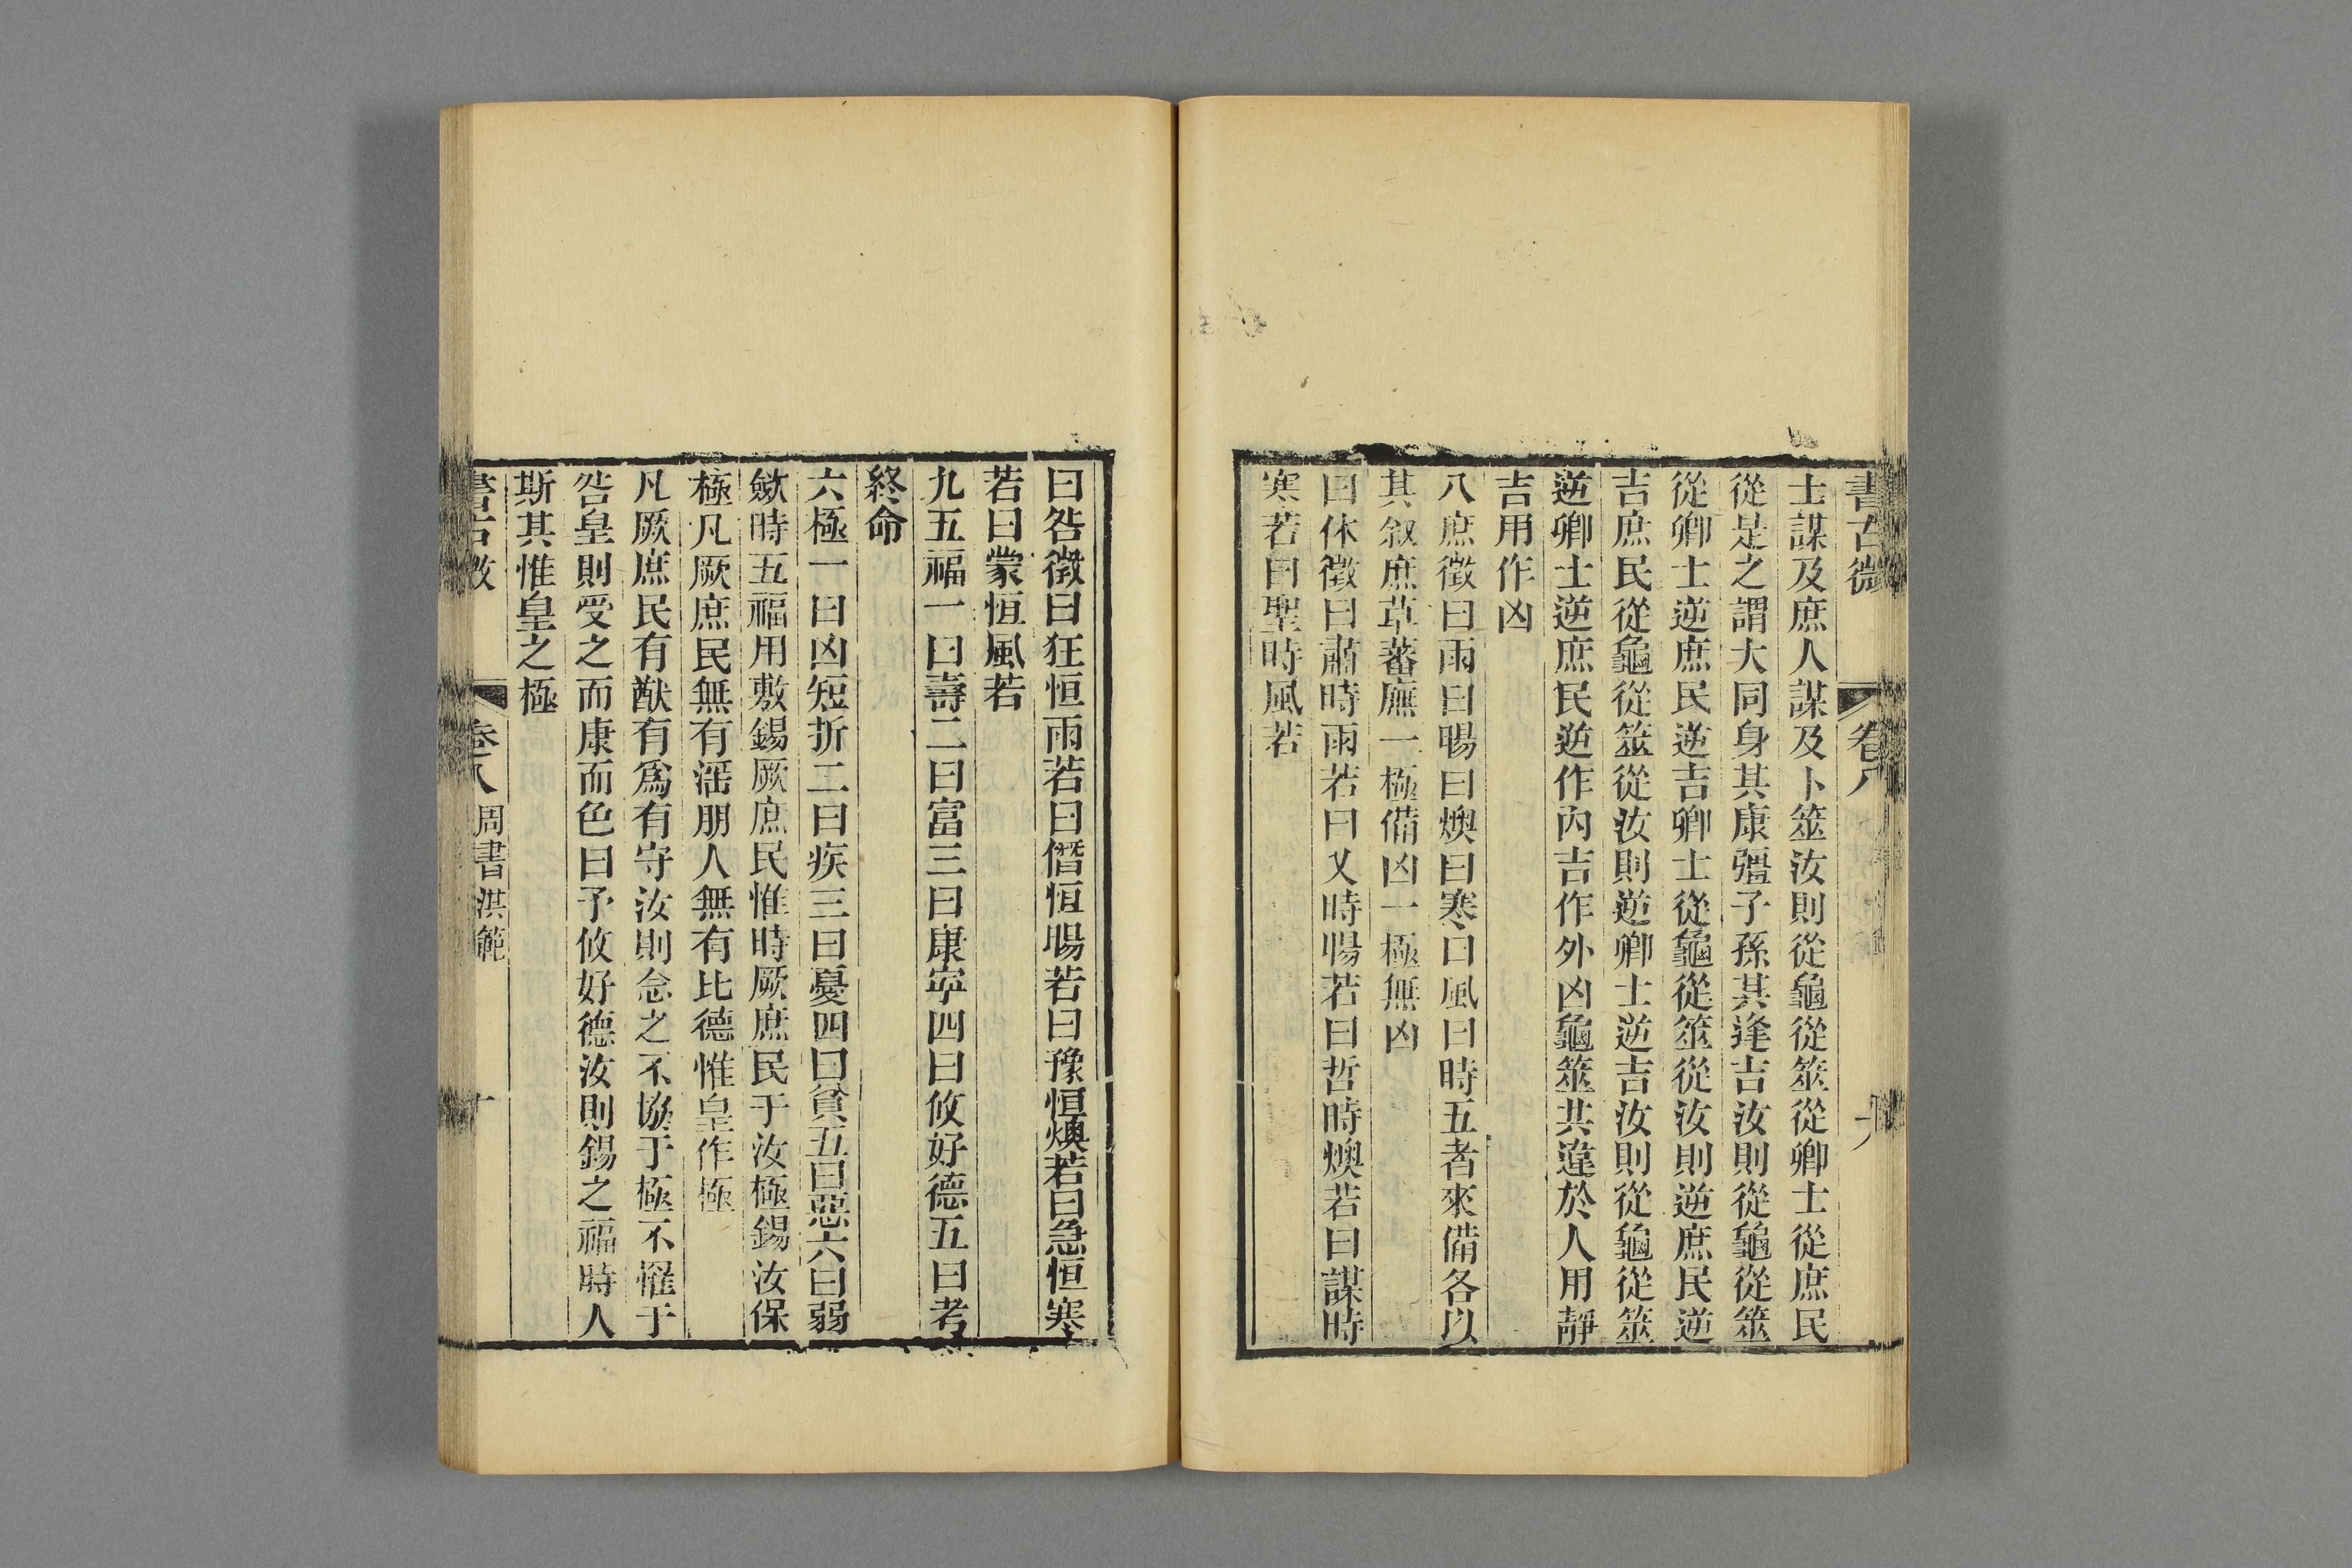 書古微 卷八 九
士謀及庶人謀及卜筮汝則從龜從筮從卿士從庶民
從是之謂大同身其康彊子孫其逢吉汝則從龜從筮
從卿士逆庶民逆吉卿士從龜從筮從汝則逆庶民逆
吉庶民從龜從筮從汝則逆卿士逆吉汝則從龜從筮
逆卿士逆庶民逆作內吉作外凶龜筮共違於人用靜
吉用作凶
八庶徵曰雨曰暘曰燠曰寒曰風曰時五者來備各以
其叙庶草蕃廡一極備凶一極無凶
曰休徵曰肅時雨若曰乂時暘若曰哲時燠若曰謀時
寒若曰聖時風若
曰咎徵曰狂恒雨若曰僭恒暘若曰豫恒燠若曰急恒寒
若曰蒙恒風若
九五福一曰壽二曰富三曰康寍四曰攸好德五曰考
終命
六極一曰凶短折二曰疾三曰憂四曰貧五曰惡六曰弱
斂時五福用敷錫厥庶民惟時厥庶民于汝極錫汝保
極凡厥庶民無有滛朋人無有比德惟皇作極
凡厥庶民有猷有爲有守汝則念之不協于極不罹于
咎皇則受之而康而色曰予攸好德汝則錫之福時人
斯其惟皇之極
書古微 卷八 周書洪範 十